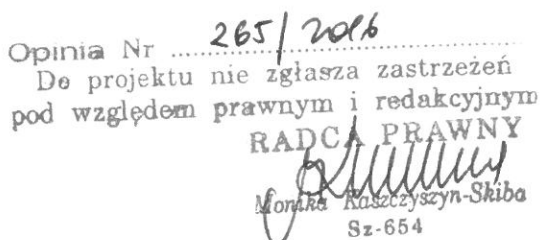 Opinia Nr 265/2016
Do projektu nie zgłasza zastrzeżeń
pod względem prawnym i redakcyjnym
RADCA PRAWNY
Monika Kaszczyszyn-Skiba
Sz-654